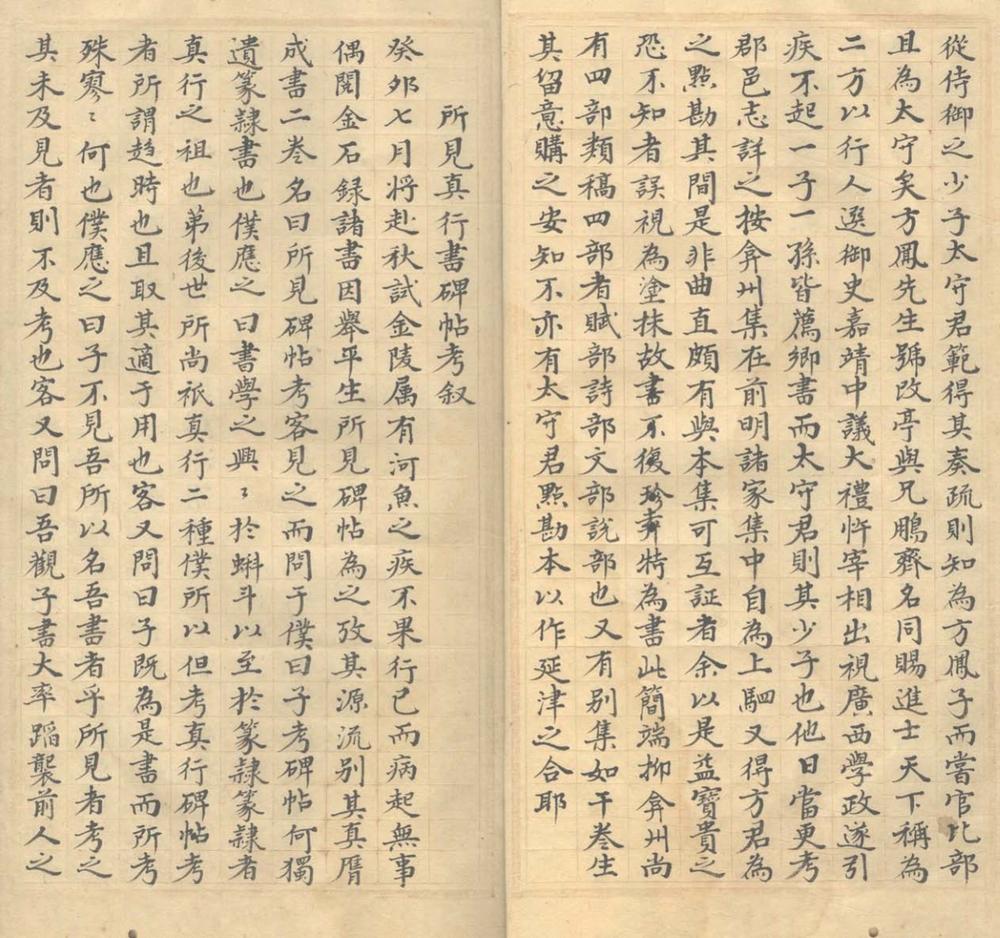 從侍御之少子太守君範得其奏疏則知為方鳳子而當官比部
且為太守矣方鳳先生號改亭與兄鵬齊名同賜進士天下稱為
二方以行人選御史嘉靖中議大禮忤宰相出視廣西學政遂引
疾不起一子一孫皆薦鄉書而太守君則其少子也他日當更考
郡邑志詳之按弇州集在前明諸家集中自為上駟又得方君為
之點勘其間是非曲直頗有與本集可互証者余以是益寶貴之
恐不知者誤視為塗抹故書不復珍弆特為書此簡端抑弇州尚
有四部類稿四部者賦部詩部文部說部也又有别集如干卷生
其留意購之安知不亦有太守君點勘本以作延津之合耶
所見真行書碑帖考叙
癸夘七月將赴秋試金陵属有河魚之疾不果行已而病起無事
偶閱金石録諸書因舉平生所見碑帖為之攷其源流别其真贗
成書二卷名曰所見碑帖考客見之而問于僕曰子考碑帖何獨
遺篆隷書也僕應之曰書學之興〻於蝌斗以至於篆隷篆隷者
真行之祖也苐後世所尚祇真行二種僕所以但考真行碑帖考
者所謂趋時也且取其適于用也客又問曰子既為是書而所考
殊寥〻何也僕應之曰子不見吾所以名吾書者乎所見者考之
其未及見者則不及考也客又問曰吾觀子書大率蹈襲前人之